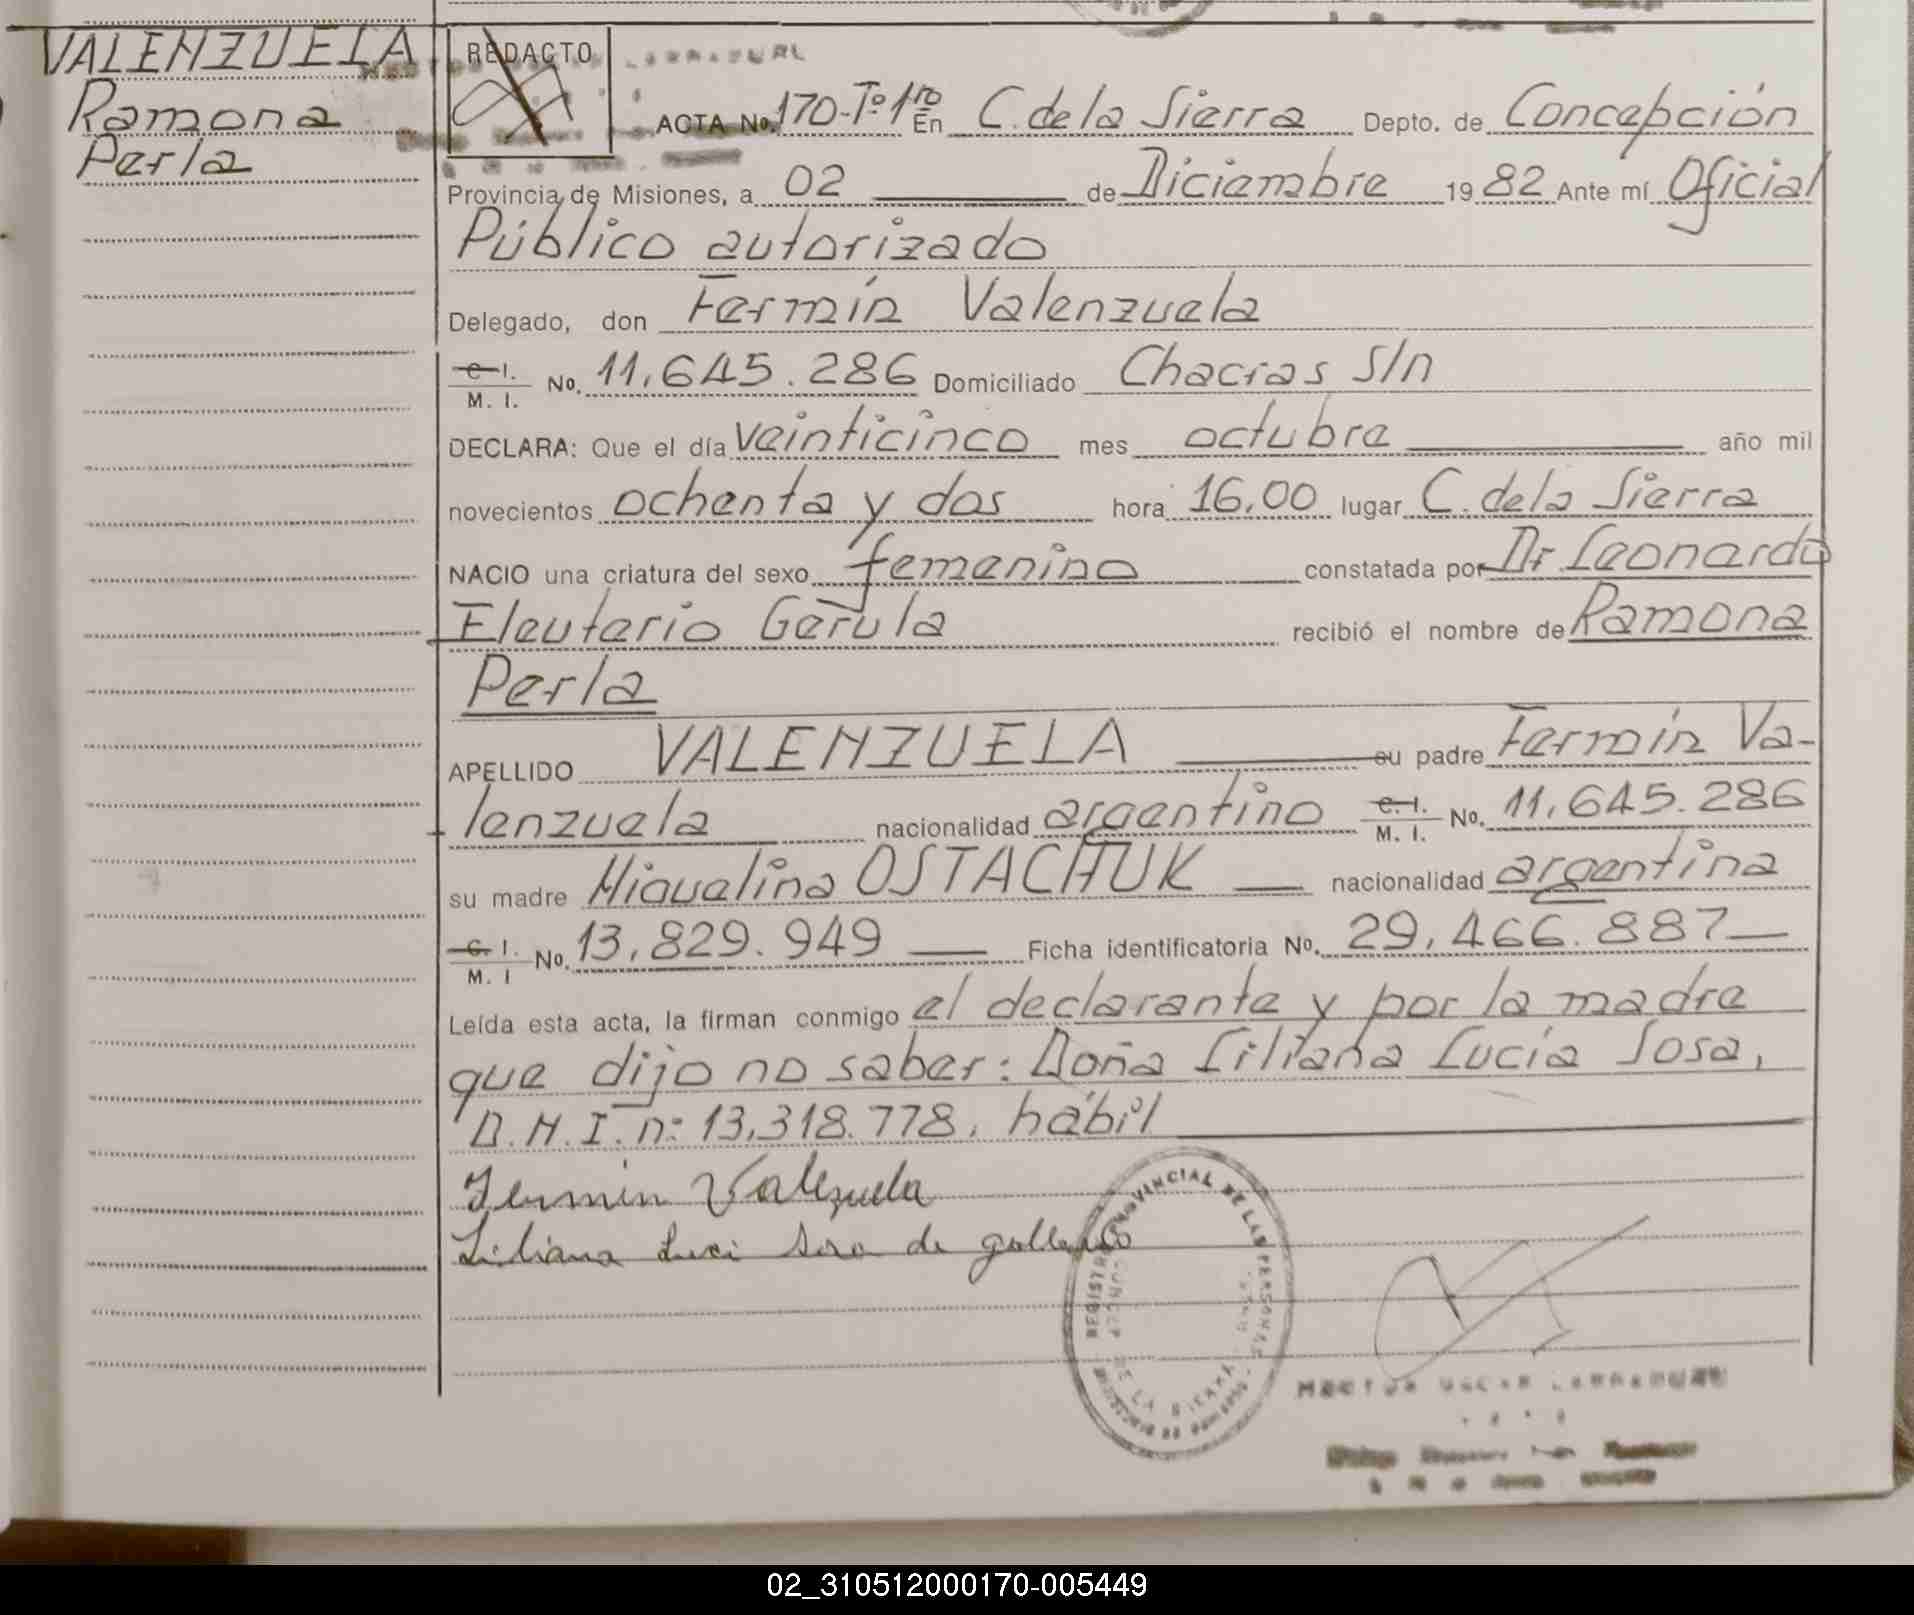 VALENZUELA
Ramona
Perla
REDACTO
ACTA No. 170-Tº1ro En C. de la Sierra Depto. de Concepción
Provincia de Misiones, a 02 de Diciembre 1982 Ante mí Oficial
Público autorizado
Delegado, don Fermín Valenzuela
C. I. M. I. No. 11.645.286 Domiciliado Chacras S/n
DECLARA: Que el día veinticinco mes octubre año mil
novecientos ochenta y dos hora 16.00 lugar C. de la Sierra
NACIO una criatura del sexo femenino constatada por Dr Leonardo
Eleuterio Gerula recibió el nombre de Ramona
Perla
APELLIDO VALENZUELA su padre Fermín Va-
lenzuela nacionalidad argentino C. I. M. I. No. 11.645.286
su madre Miquelina OSTACHUK nacionalidad argentina
C. I. M. I No. 13.829.949 Ficha identificatoria No. 29.466.887
Leída esta acta, la firman conmigo el declarante y por la madre
que dijo no saber: Doña Liliana Lucía Sosa,
D.N.I. n: 13.318.778, hábil
Fermin Valezuela
Liliana Luci Sosa de
REGISTRO PROVINCIAL DE LAS PERSONAS
DE LA SIERRA
HECTOR OSCAR
02_310512000170-005449